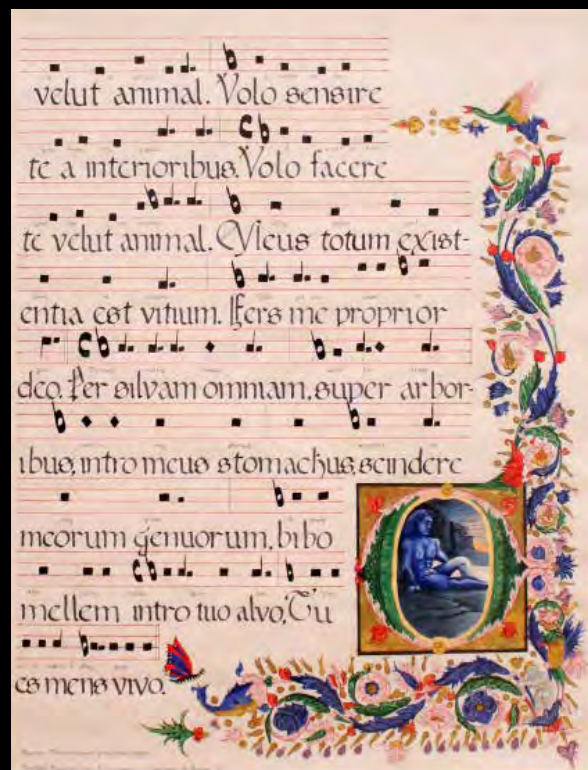 velut animal. Volo sensire
te a interioribus. Volo facere
te velut animal. Meus totum exist-
entia est vitium. Fers me proprior
deo. Per silvam omniam, super arbor-
ibus, intro meus stomachus, scindere
meorum genuorum, bibo
mellem intro tuo alvo, Tu
es mens vivo.